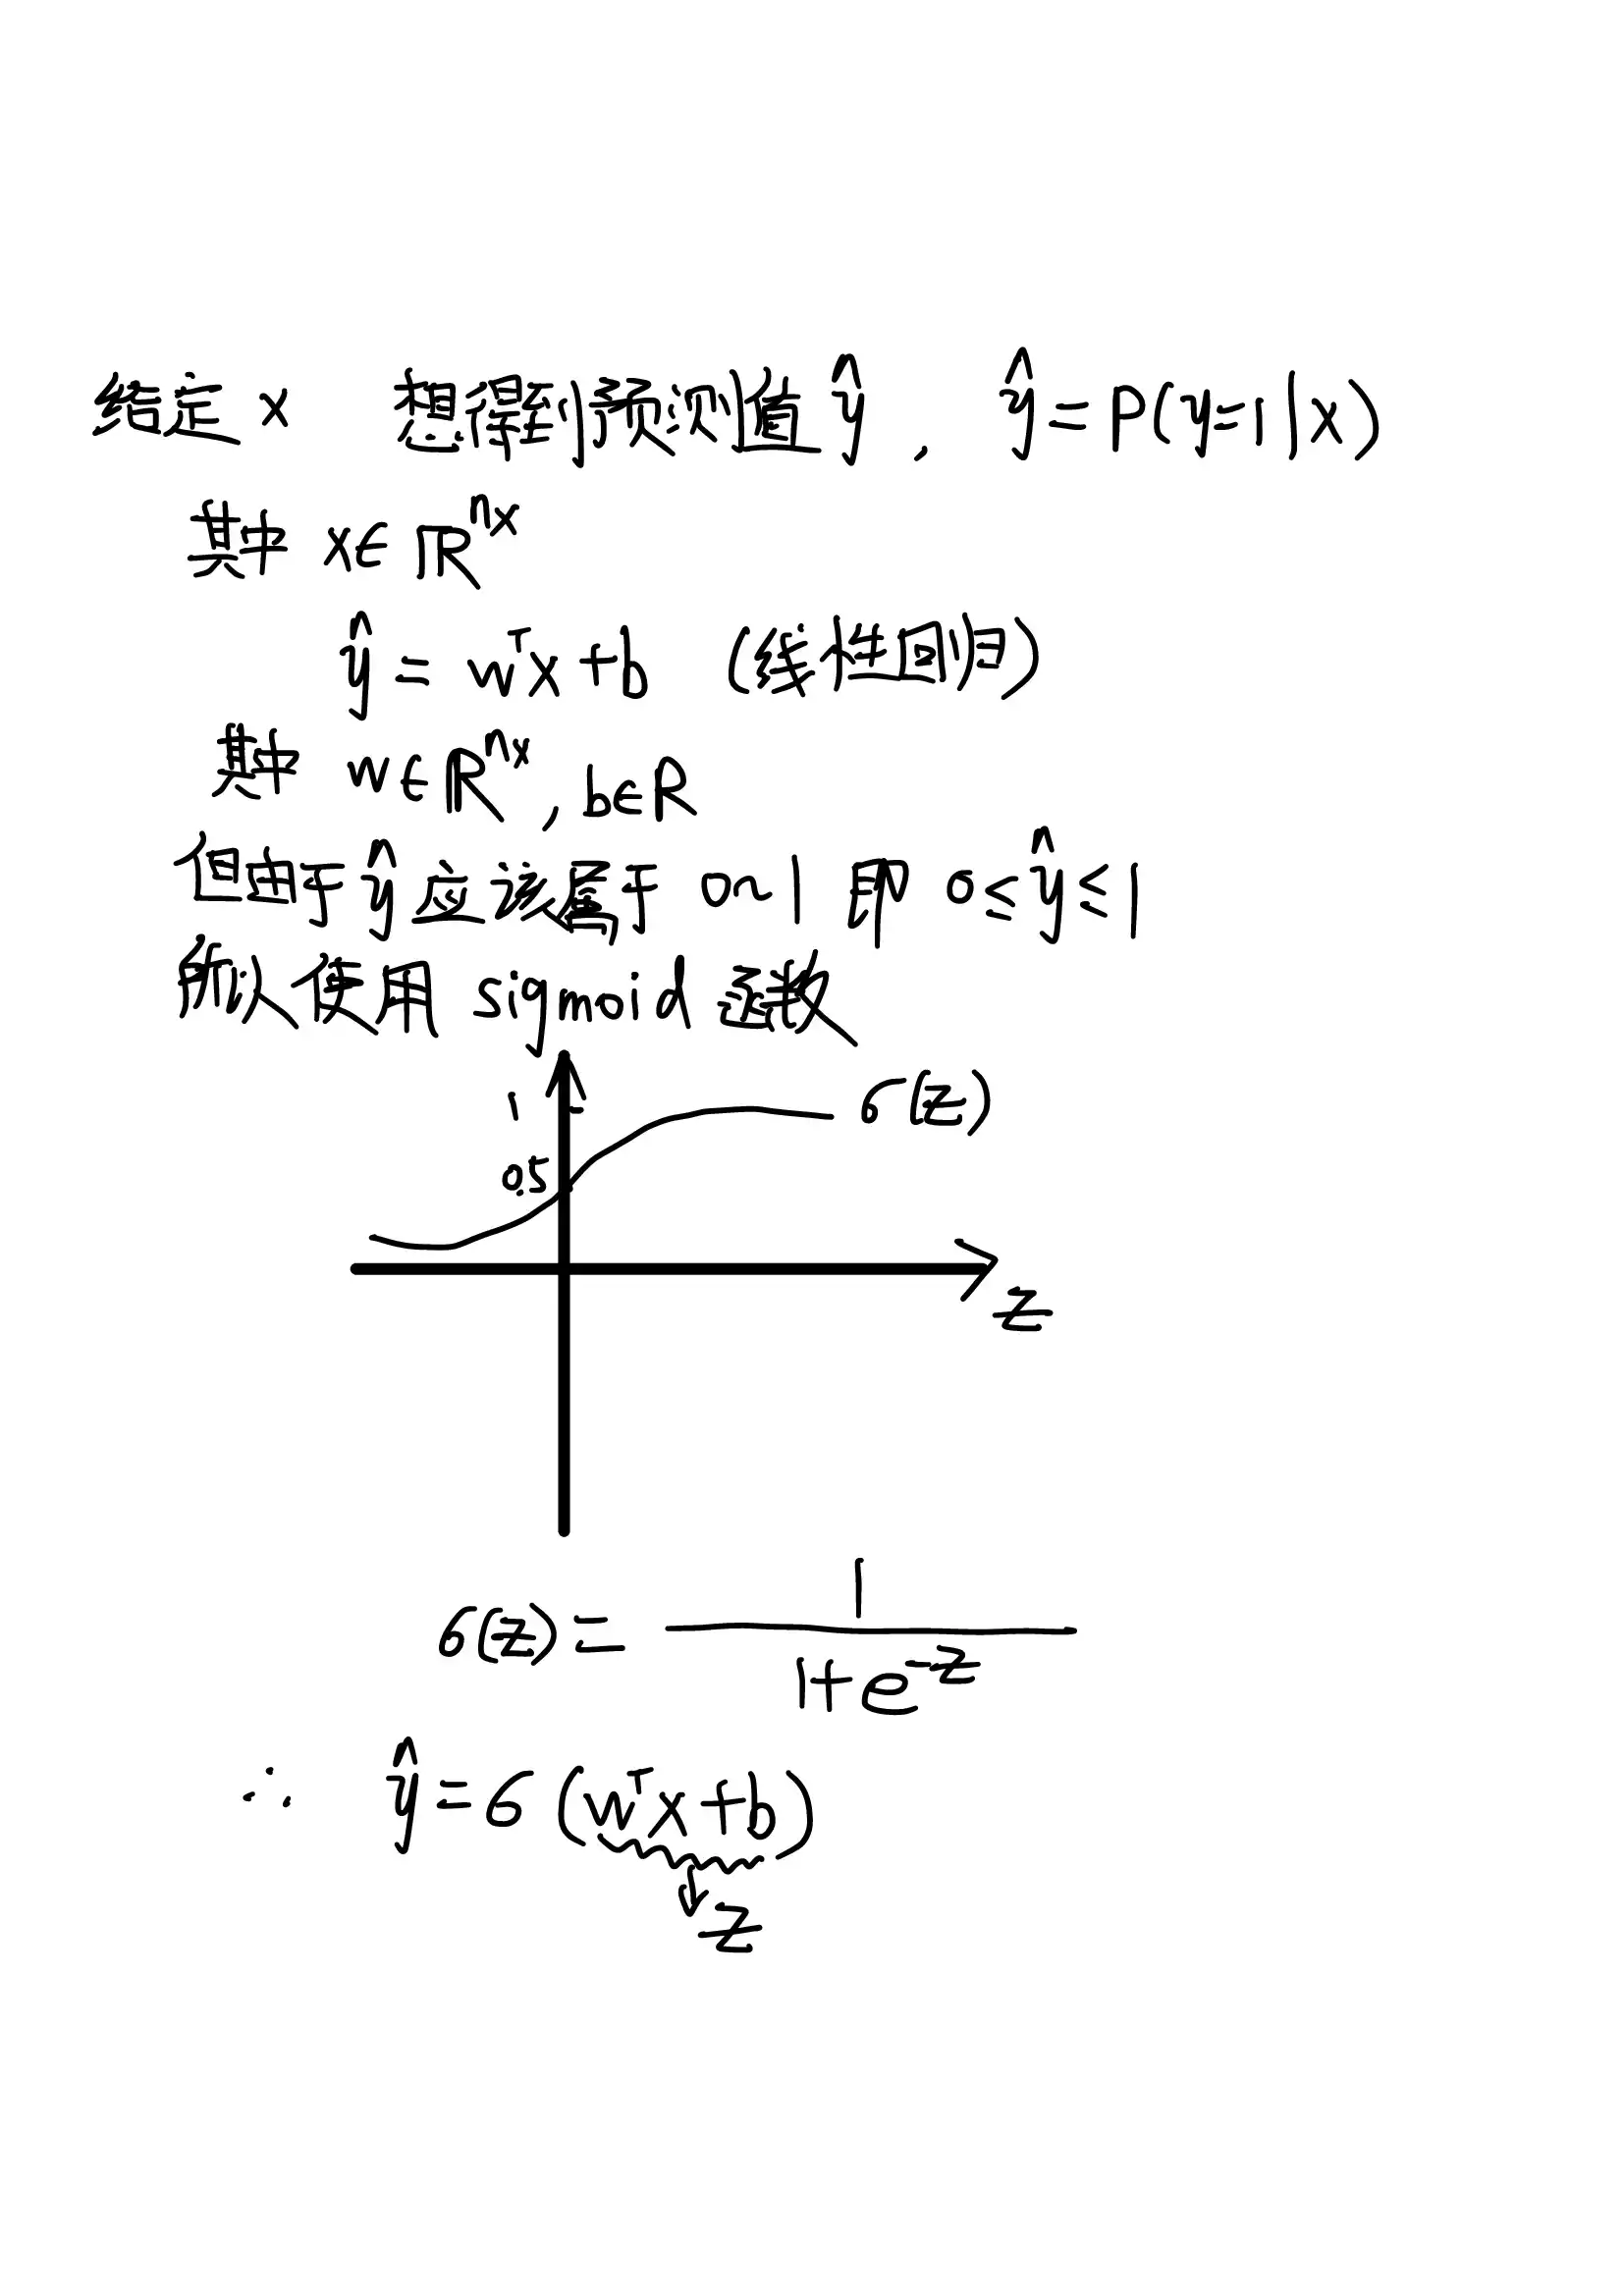 给定 x 想得到预测值 ŷ, ŷ=P(y=1|x)
其中 x∈ℝ^nx
ŷ = wᵀx+b (线性回归)
其中 w∈ℝ^nx, b∈R
但由于 ŷ 应该属于 0~1 即 0≤ŷ≤1
所以使用 sigmoid 函数
1
σ(z)
0.5
z
σ(z) = 1/(1+e^-z)
∴ ŷ=σ(wᵀx+b)
z